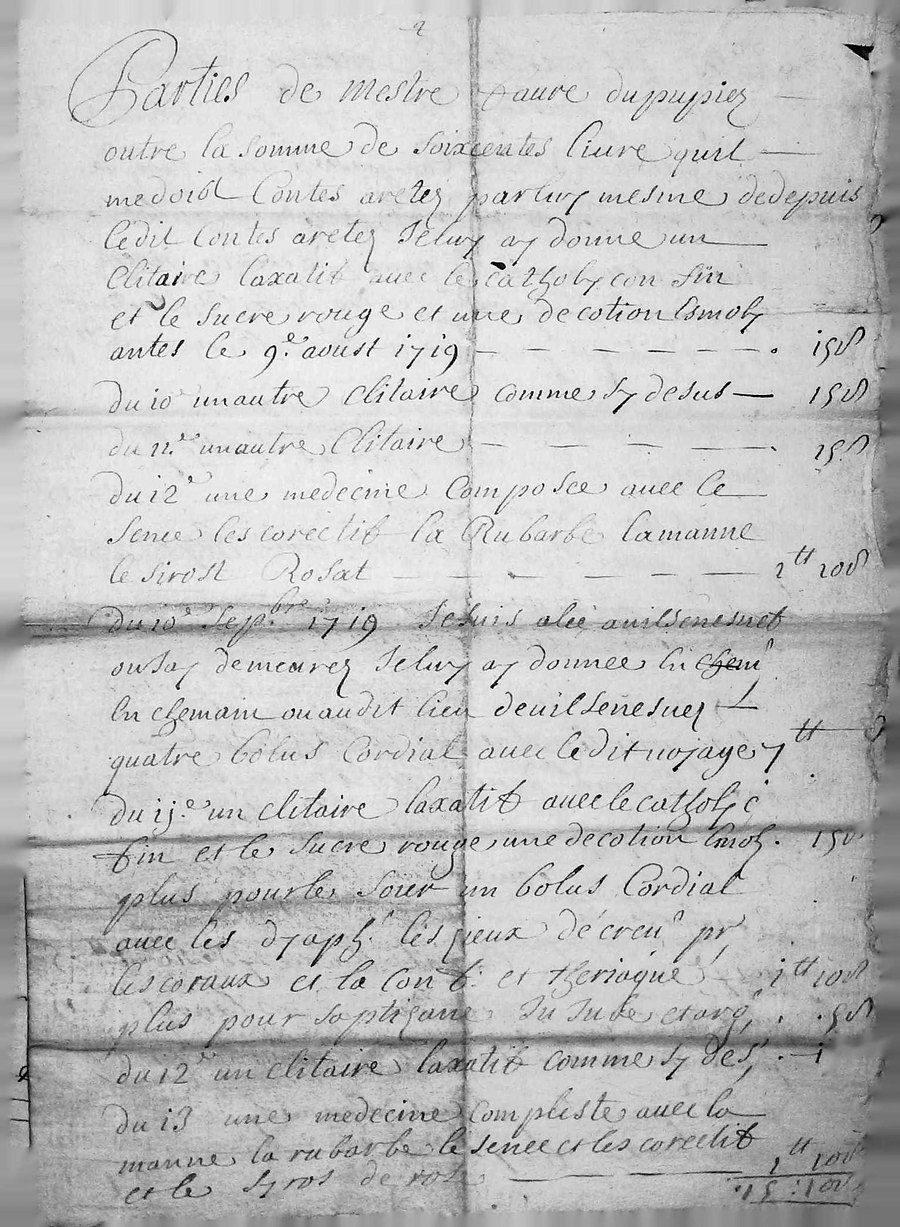 2
Parties de mestre faure dupupiez
outre la somme de soixcentes liure quil
me doibt Contes aretez parluy mesme dedepuis
ledit Contes aretez Jeluy ay donne un
Clitaire laxatif auec le catholycon fin
et le sucre rouge et une decotion Esmoly
antes le 9e aoust 1719 - - - - - - 15s
du 10e un autre Clitaire comme sy desus — 15s
du 11e un autre Clitaire - - - - 15s
du 12e une medecine Composee auec le
sene les corectif la Rubarbe lamanne
le sirost Rosat - - - - - - 1tt 10s
du 10e sepbre 1719 Jesuis alée
ou Jay demeurez Jeluy ay donnee En chem
En chemain ou audit lieu
quatre bolus Cordial auec ledit uoyage 7tt
du 11e un clitaire laxatif auec le catholyc
fin et le sucre rouge une decotion Emol. 15s
plus pour le soir un bolus Cordial
auec les dyaph. les ieux décreu pr
les coraux et la Conf. et theriaque 1tt 10s
plus pour sa ptizane Ju Jube et org 5s
du 12e un clitaire laxatif comme sy des, 1
du 13 une medecine compleste auec la
manne la rubarbe le senee et les corectif
et le syros de ros 1tt 10s
15 : 10s